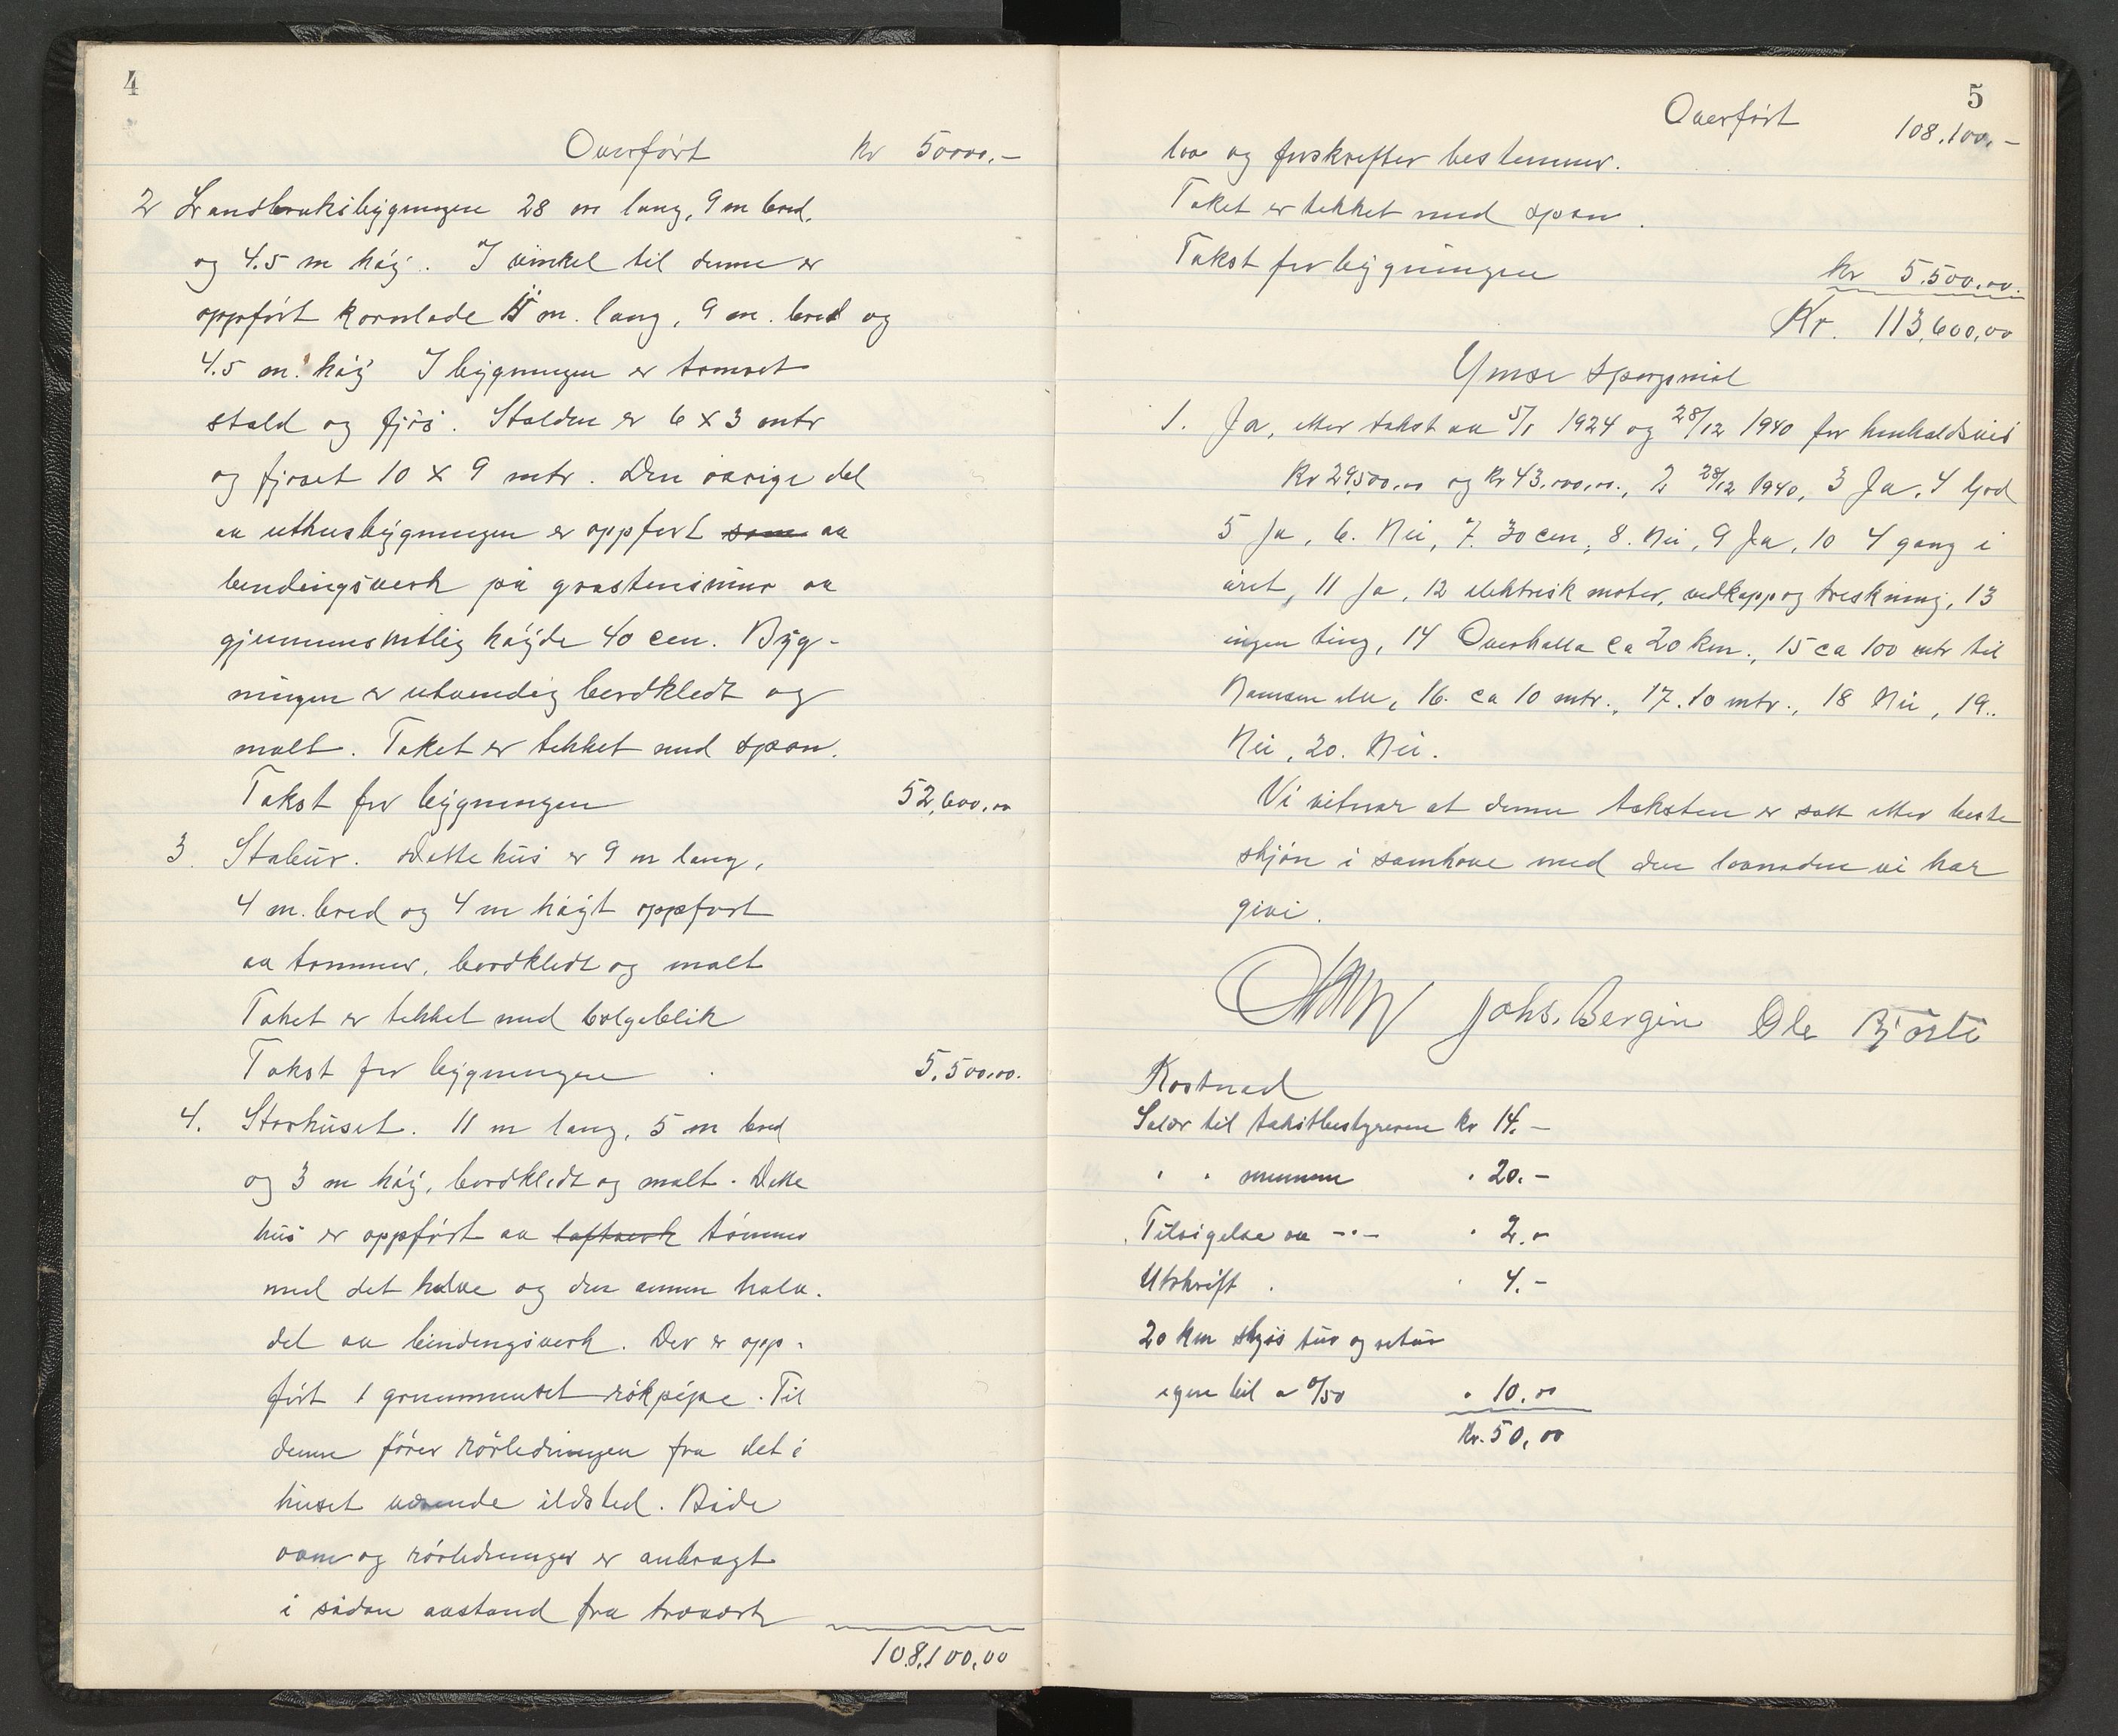 4
Overført kr 50000.-
2 Landbruksbygningen 28 m lang, 9 m bred,
og 4.5 m høy. I vinkel til denne er
oppført kornlade m. lang, 9 m. bred og
4.5 m. høy I bygningen er tømret
stald og fjøs. Stalden er 6 x 3 mtr
og fjøset 10 x 9 mtr. Den øvrige del
av uthusbygningen er oppført som av
bindingsverk på gråstensmur av
gjennemsnitlig høyde 40 cm. Byg-
ningen er utvendig bordkledt og
malt. Taket er tekket med spon.
Takst for bygningen 52,600,00
3. Stabur. Dette hus er 9 m lang,
4 m. bred og 4 m høyt oppført
av tømmer, bordkledt og malt
Taket er tekket med bølgeblik
Takst for bygningen 5.500.00.
4. Storhuset. 11 m lang, 5 m bred
og 3 m høy, bordkledt og malt. Dette
hus er oppført av laftverk tømmer
med det halve og den annen halv.
del av bindingsverk. Der er opp-
ført 1 grunnmuret røkpipe. Til
denne fører rørledningen fra det i
huset værende ildsted. Både
ovn og rørledninger er anbragt
i sådan avstand fra treverk
108,100,00
5
Overført 108.100.-
lov og forskrifter bestemmer.
Taket er tekket med spon.
Takst for bygningen kr 5.500,00.
Kr. 113,600,00
Ymse spørsmål
1. Ja, etter takst av 5/1 1924 og 28/12 1940 for henholdsvis
Kr 29500,00 og kr 43.000,00., 2 28/12 1940, 3 Ja, 4 God
5 Ja, 6. Nei, 7. 30 cm, 8. Nei, 9 Ja, 10 4 gang i
året, 11 Ja, 12 elektrisk motor, vedkapp og treskning, 13
ingen ting, 14 Overhalla ca 20 km., 15 ca 100 mtr til
Namsen elv, 16. ca 10 mtr., 17. 10 mtr., 18 Nei, 19.
Nei, 20. Nei.
Vi vitnar at denne taksten er satt etter beste
skjøn i samhøve med den lovnaden vi har
givi.
Johs. Bergin Ole Bjørti
Kostnad
Salær til takstbestyreren kr 14.-
" " mennene " 20.-
Tilsigelse av -"- " 2.-
Utskrift . " 4.-
20 km skyss tur og retur
egen bil a 0/50 " 10.00
Kr. 50,00